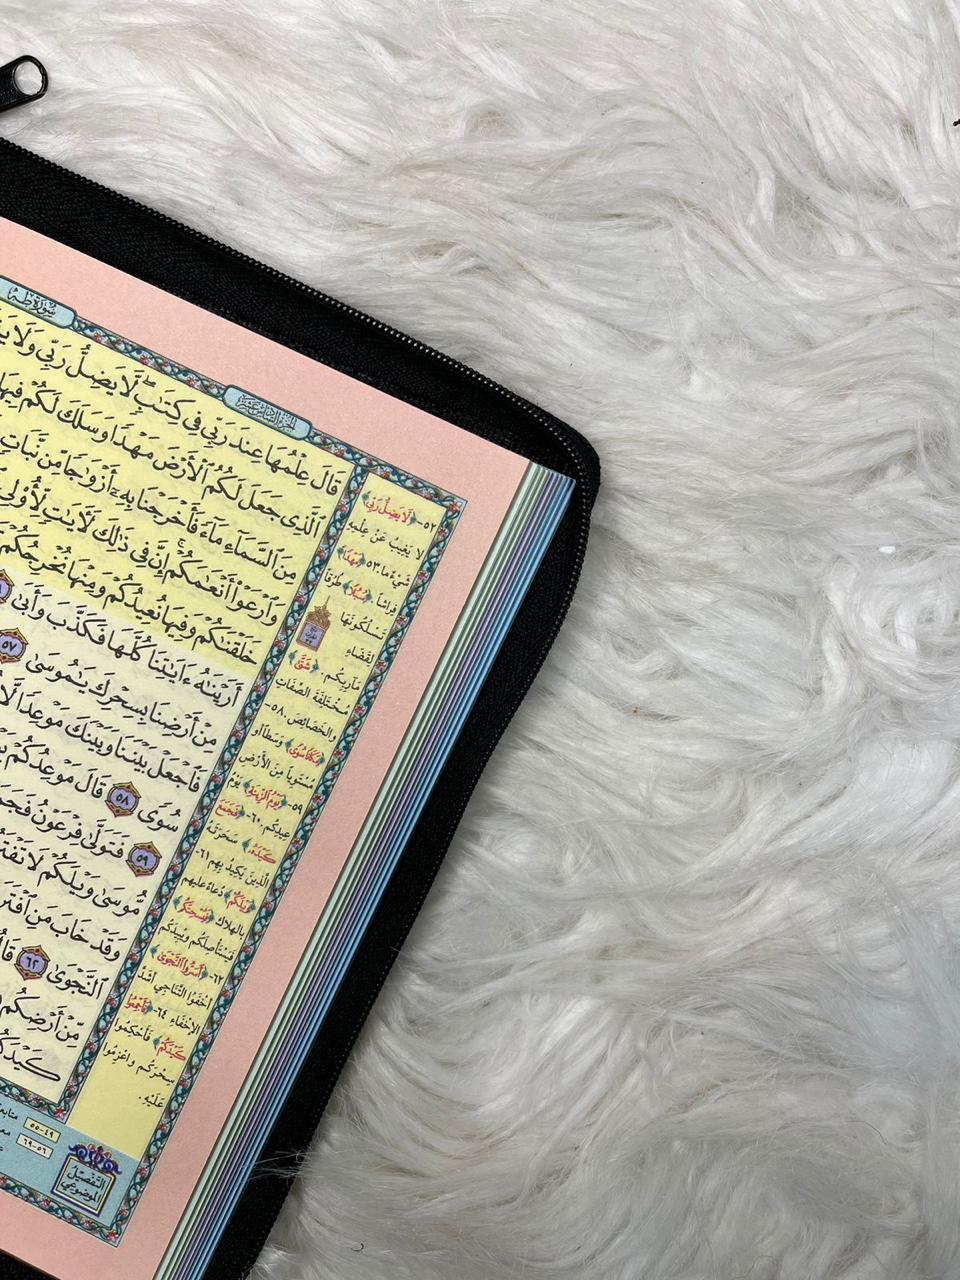 سورة طه
الجزء السادس عشر
قَالَ عِلْمُهَا عِندَ رَبِّى فِى كِتَٰبٍ لَّا يَضِلُّ رَبِّى وَلَا
ٱلَّذِى جَعَلَ لَكُمُ ٱلْأَرْضَ مَهْدًا وَسَلَكَ لَكُمْ فِيهَا
مِنَ ٱلسَّمَآءِ مَآءً فَأَخْرَجْنَا بِهِۦٓ أَزْوَٰجًا مِّن نَّبَاتٍ
وَٱرْعَوْا۟ أَنْعَٰمَكُمْ إِنَّ فِى ذَٰلِكَ لَءَايَٰتٍ لِّأُو۟لِى
خَلَقْنَٰكُمْ وَفِيهَا نُعِيدُكُمْ وَمِنْهَا نُخْرِجُكُمْ
أَرَيْنَٰهُ ءَايَٰتِنَا كُلَّهَا فَكَذَّبَ وَأَبَىٰ
مِنْ أَرْضِنَا بِسِحْرِكَ يَٰمُوسَىٰ ٥٧
فَٱجْعَلْ بَيْنَنَا وَبَيْنَكَ مَوْعِدًا لَّا
سُوًى ٥٨ قَالَ مَوْعِدُكُمْ
٥٩ فَتَوَلَّىٰ فِرْعَوْنُ
مُّوسَىٰ وَيْلَكُمْ لَا
وَقَدْ خَابَ مَنِ
ٱلنَّجْوَىٰ ٦٢
مِّنْ أَرْضِكُم
٥٢- لَا يَضِلُّ رَبِّي
لا يَغِيبُ عَنْ عِلْمِهِ
شَيْءٌ مَا. ٥٣- مَهْدًا
فِرَاشًا - سُبُلًا طُرُقًا
تَسْلُكُونَهَا
لِقَضَاءِ
مَآرِبِكُم. - شَتَّى
مُخْتَلِفَةَ الصِّفَاتِ
والخَصَائِصِ. ٥٨-
مَكَانًا سُوًى وَسَطًا أو
مُسْتَوِيًا مِنَ الأَرْضِ
٥٩- يَوْمُ الزِّينَةِ يَوْمُ
عِيدِكُم. ٦٠- فَجَمَعَ
كَيْدَهُ سَحَرَتَهُ
الَّذِينَ يَكِيدُ بِهِم ٦١-
وَيْلَكُمْ دُعَاءٌ عليهم
بالهَلاك فَيُسْحِتَكُم
فَيَسْتَأْصِلَكُم ويُبِيدَكُم
٦٢- أَسَرُّوا النَّجْوَى
أَخْفَوُا التَّناجِي أَشَدَّ
الإخْفَاءِ ٦٤- فَأَجْمِعُوا
كَيْدَكُمْ فَأَحْكِمُوا
سِحْرَكُم واعْزِمُوا
عَلَيْهِ.
٤٩-٥٥
٥٦-٦٩
التَّفْصِيلُ
المَوْضُوعِي